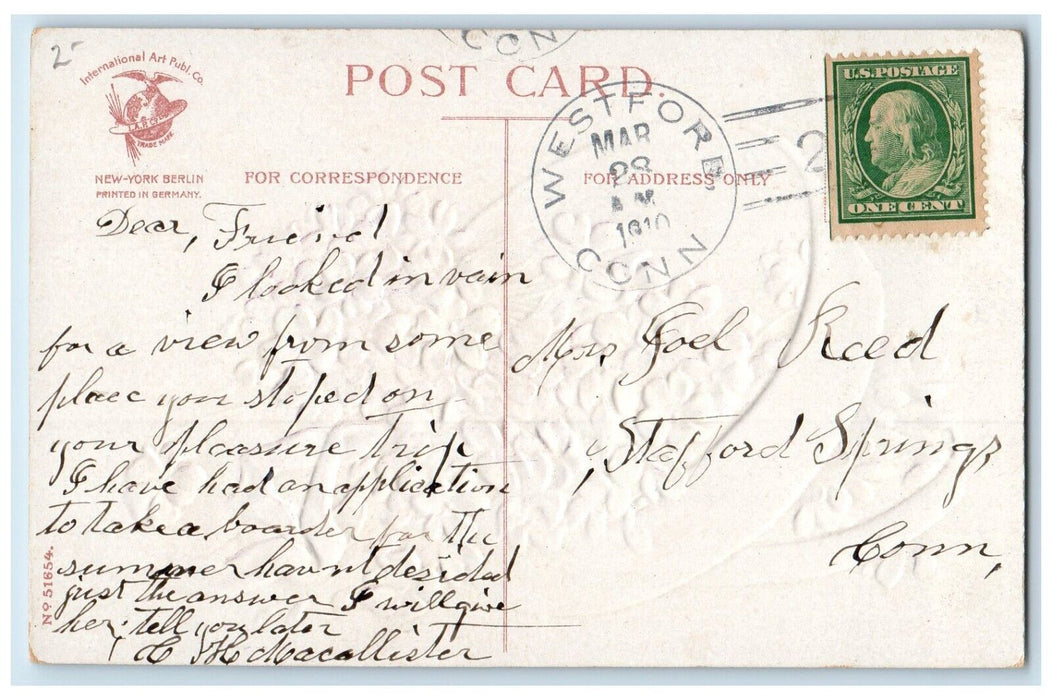 2-
International Art Publ. Co.
TRADE MARK
NEW-YORK BERLIN
PRINTED IN GERMANY.
POST CARD.
FOR CORRESPONDENCE
FOR ADDRESS ONLY
CONN
WESTFORD
MAR
23
A.M.
1910
CONN
2
U.S. POSTAGE
ONE CENT
Dear, Friend
I looked in vain
for a view from some
place your stoped on
your pleasure trip
I have had an application
to take a boarder for the
summer havnt desided
just the answer I will give
her. tell you later
E H Macallister
Mrs, Joel Reed
Stafford Springs
Conn,
No 51654.